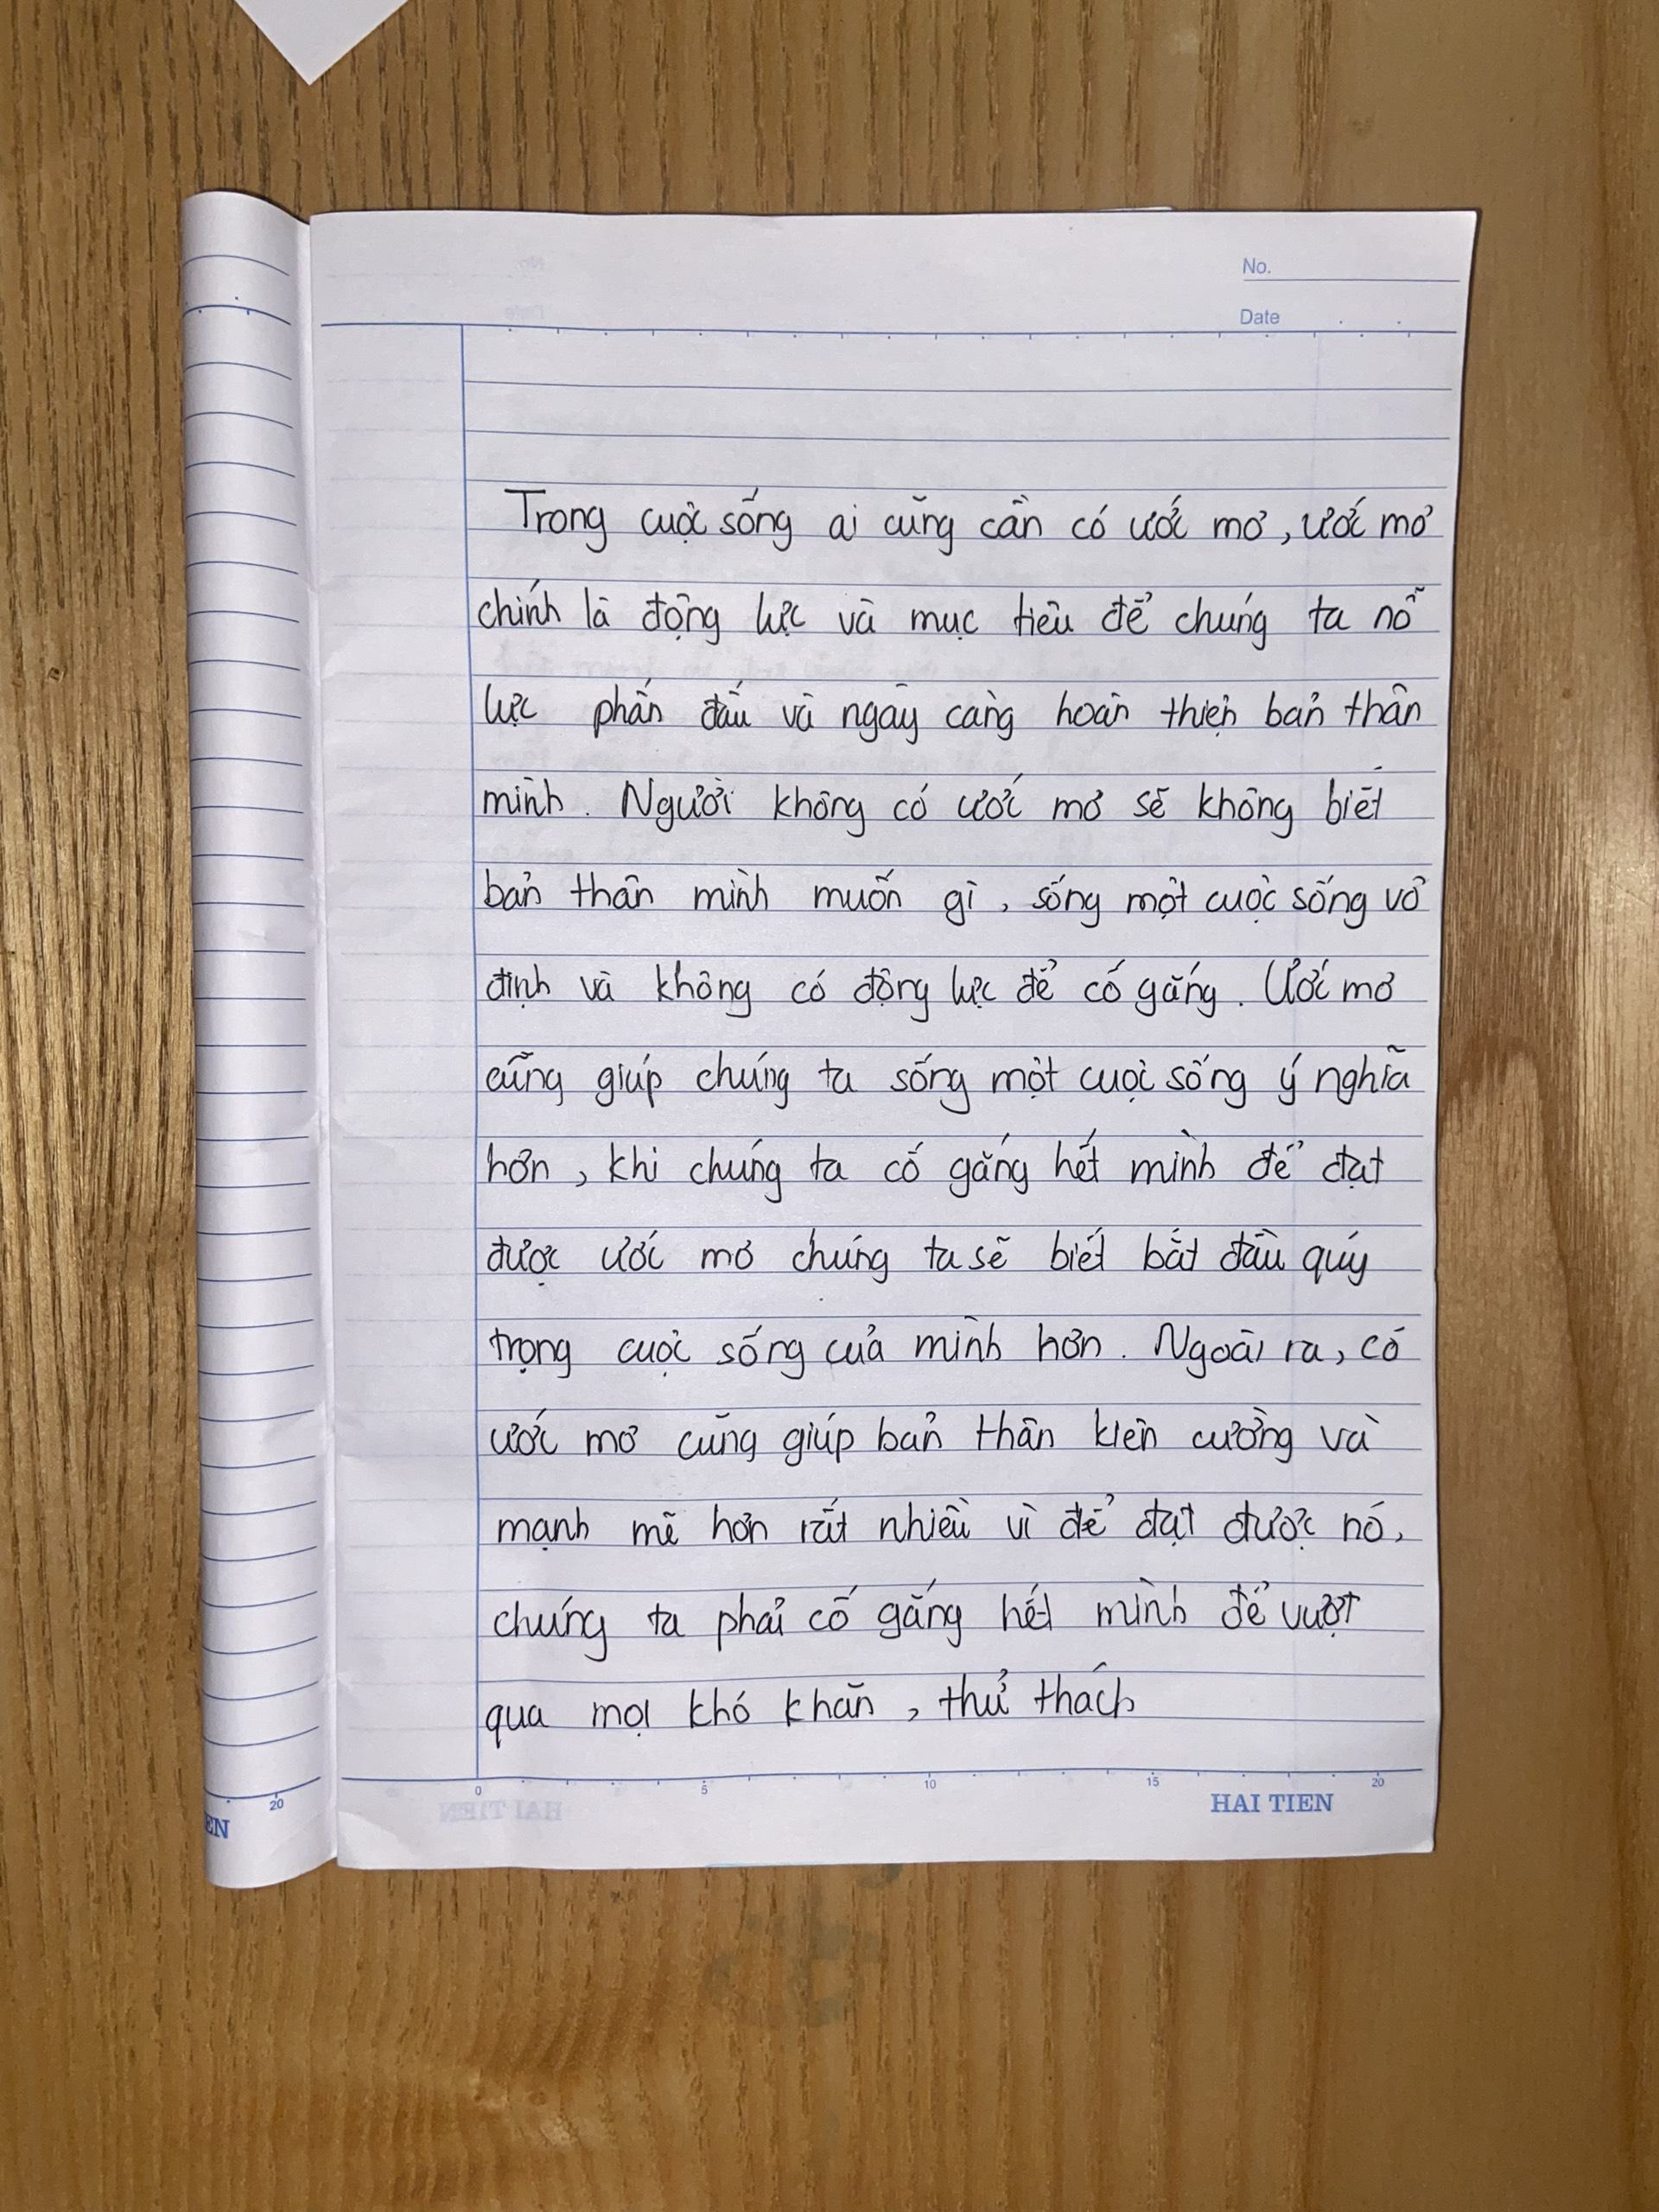 No.
Date
Trong cuộc sống ai cũng cần có ước mơ, ước mơ
chính là động lực và mục tiêu để chúng ta nỗ
lực phấn đấu và ngày càng hoàn thiện bản thân
mình. Người không có ước mơ sẽ không biết
bản thân mình muốn gì, sống một cuộc sống vô
định và không có động lực để cố gắng. Ước mơ
cũng giúp chúng ta sống một cuộc sống ý nghĩa
hơn, khi chúng ta cố gắng hết mình để đạt
được ước mơ chúng ta sẽ biết bắt đầu quý
trọng cuộc sống của mình hơn. Ngoài ra, có
ước mơ cũng giúp bản thân kiên cường và
mạnh mẽ hơn rất nhiều vì để đạt được nó,
chúng ta phải cố gắng hết mình để vượt
qua mọi khó khăn, thử thách
0 5 10 15 20
HAI TIEN
20
EN